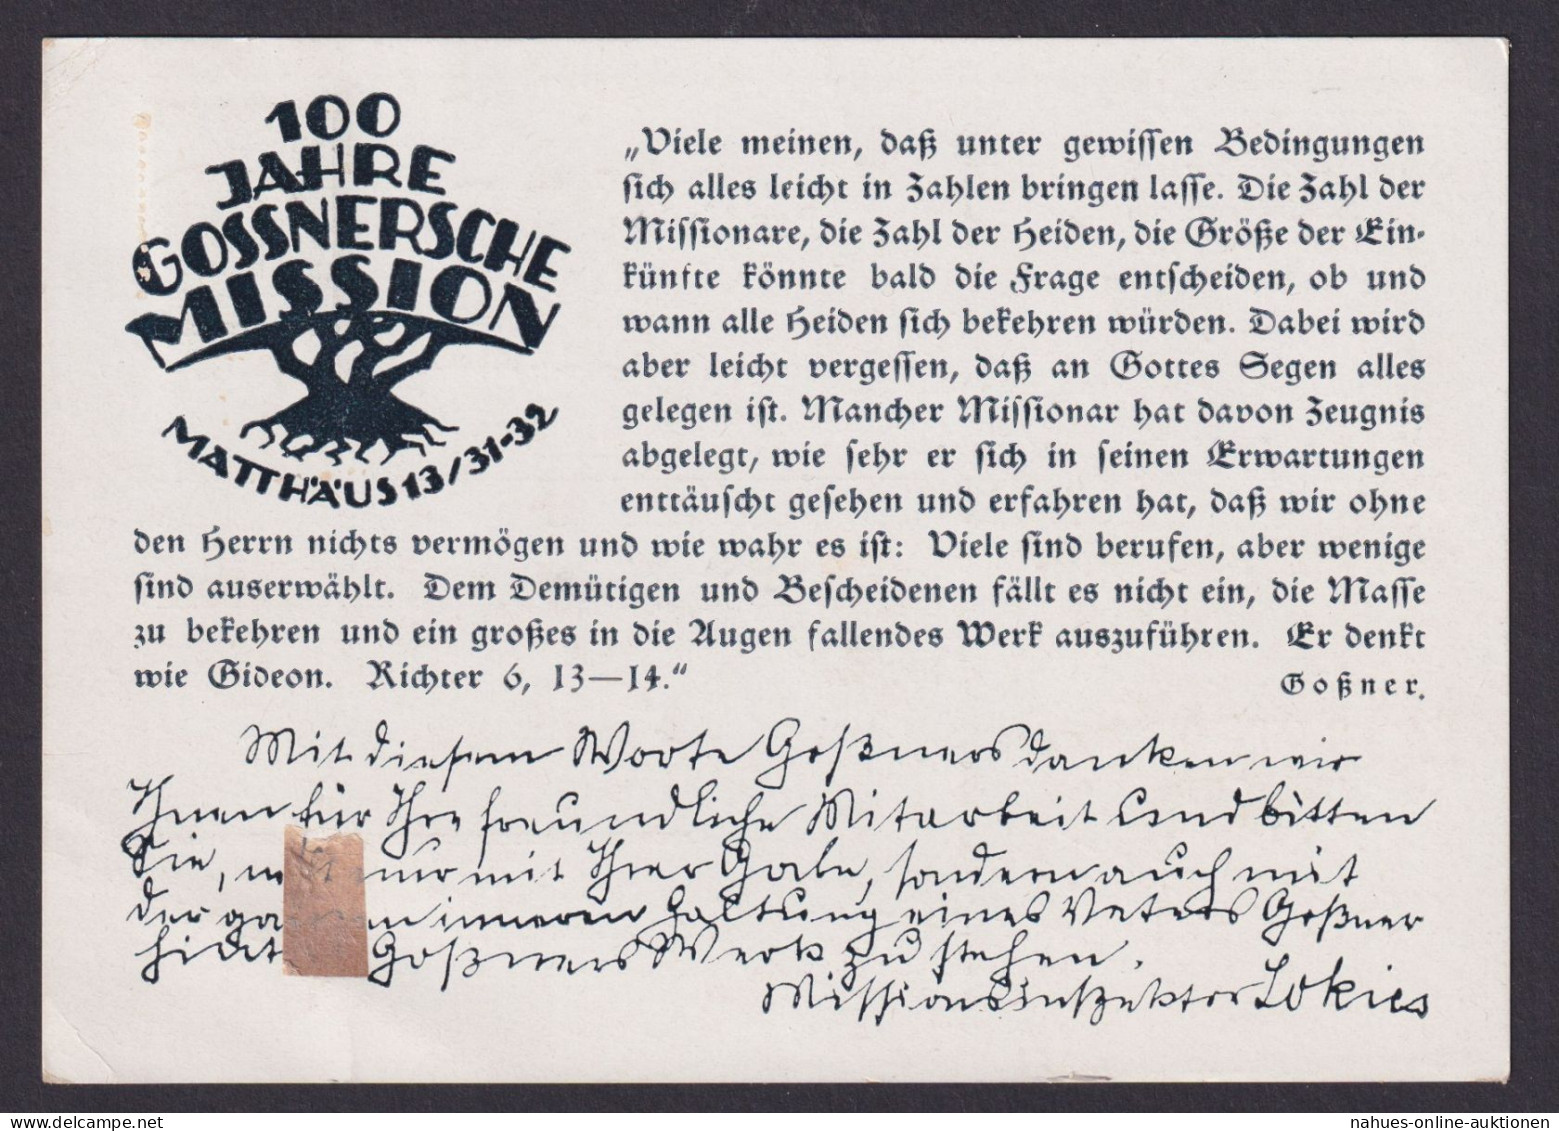 100
JAHRE
GOSSNERSCHE
MISSION
MATTHÄUS 13/31-32
„Viele meinen, daß unter gewissen Bedingungen
sich alles leicht in Zahlen bringen lasse. Die Zahl der
Missionare, die Zahl der Heiden, die Größe der Ein-
künfte könnte bald die Frage entscheiden, ob und
wann alle Heiden sich bekehren würden. Dabei wird
aber leicht vergessen, daß an Gottes Segen alles
gelegen ist. Mancher Missionar hat davon Zeugnis
abgelegt, wie sehr er sich in seinen Erwartungen
enttäuscht gesehen und erfahren hat, daß wir ohne
den Herrn nichts vermögen und wie wahr es ist: Viele sind berufen, aber wenige
sind auserwählt. Dem Demütigen und Bescheidenen fällt es nicht ein, die Masse
zu bekehren und ein großes in die Augen fallendes Werk auszuführen. Er denkt
wie Gideon. Richter 6, 13—14.“
Goßner.
Mit diesem Worte Goßners danken wir
Ihnen für Ihre freundliche Mitarbeit und bitten
Sie, nur mit Ihrer Gabe, sondern auch mit
der inneren Haltung eines Vaters Goßner
Goßners Werk zu stehen.
Missionsinspektor Lokies
nahues-online-auktionen